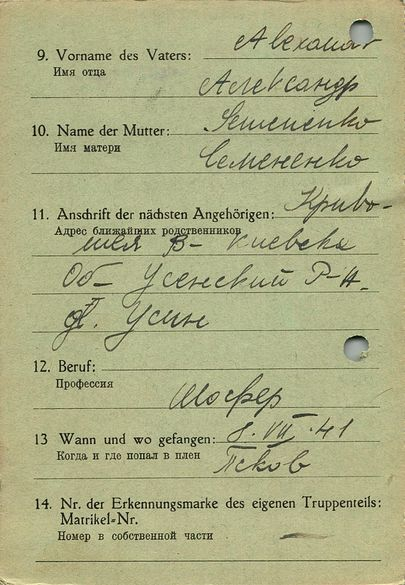 9. Vorname des Vaters:
Имя отца
Александр
10. Name der Mutter:
Имя матери
Семененко
11. Anschrift der nächsten Angehörigen: Криво-
Адрес ближайших родственников
шея В- Киевска
Об- Усенский Р-н.
Усин
12. Beruf:
Профессия
Шофер
13 Wann und wo gefangen: 8. VII ·41
Когда и где попал в плен
Псков
14. Nr. der Erkennungsmarke des eigenen Truppenteils:
Matrikel-Nr.
Номер в собственной части
—